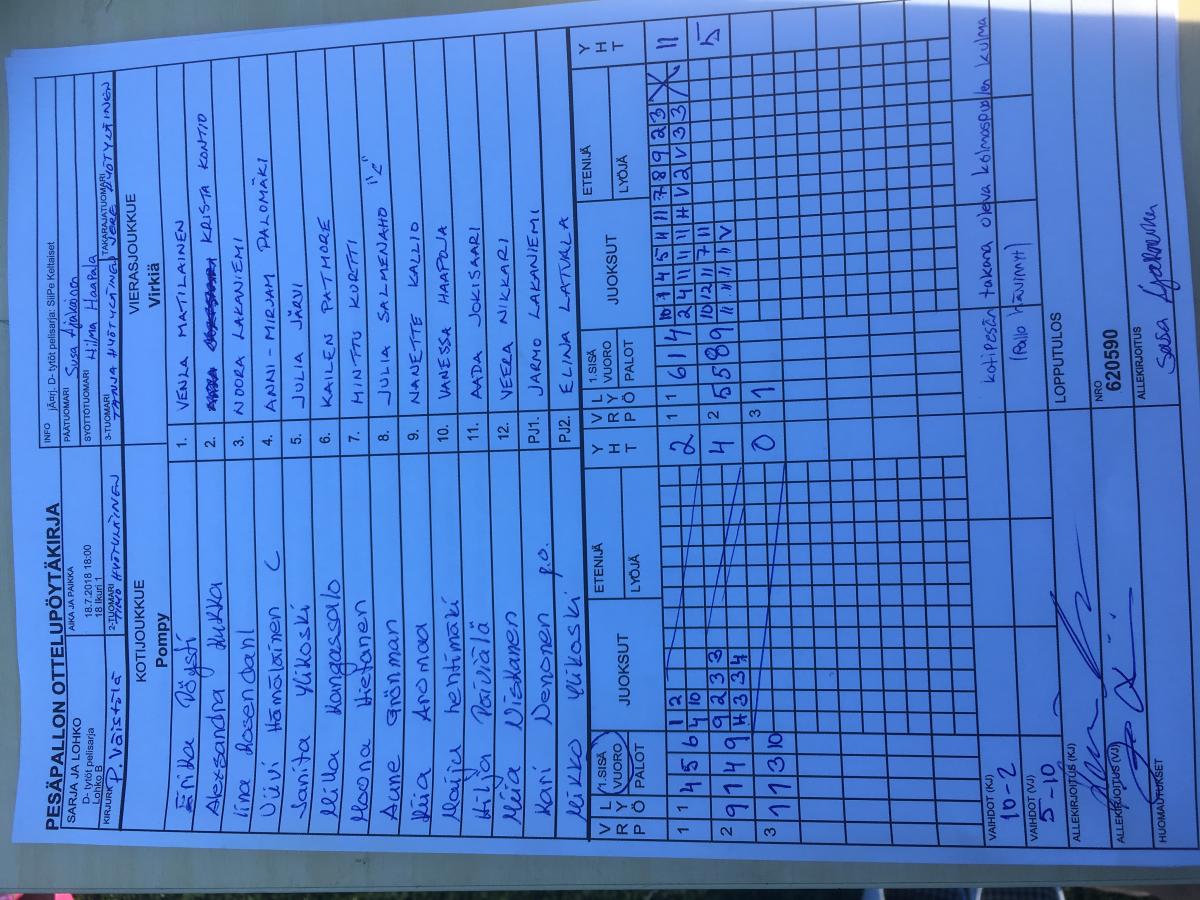 PESÄPALLON OTTELUPÖYTÄKIRJA
SARJA JA LOHKO
D- tytöt pelisarja
Lohko B
AIKA JA PAIKKA
18.7.2018 18:00
18 Ikuri 1
INFO jÄmj. D- tytöt pelisarja: SiiPe Keltaiset
PÄÄTUOMARI Susa Ajakainen
SYÖTTÖTUOMARI Hilma Haapala
KIRJURI P. Väistölä
2-TUOMARI TIMO HYÖTYLÄINEN
3-TUOMARI TANJA HYÖTYLÄINEN
TAKARAJATUOMARI JERE HYÖTYLÄINEN
KOTIJOUKKUE
Pompy
VIERASJOUKKUE
Virkiä
Erika Pöysti 1. VENLA MATILAINEN
Aleksandra Kukka 2. KRISTA KONTIO
Iina Rosendahl 3. NOORA LAKANIEMI
Viivi Hämäläinen C 4. ANNI-MIRJAM PALOMÄKI
Janita Ylikoski 5. JULIA JÄRVI
Milla Kangassalo 6. KAILEN PATMORE
Moona Hietanen 7. MINTTU KURTTI
Aune Grönman 8. JULIA SALMENAHO "C"
Kiia Aromaa 9. NANETTE KALLIO
Maiju Lehtimäki 10. VANESSA HAAPOJA
Hilja Päiviälä 11. AADA JOKISAARI
Meja Niskanen 12. VEERA NIKKARI
Kari Nenonen p.o. PJ1. JARMO LAKANIEMI
Mikko Ylikoski PJ2. ELINA LATVALA
V R P L Y Ö 1.SISÄ VUORO PALOT JUOKSUT ETENIJÄ LYÖJÄ Y H T
V R P L Y Ö 1.SISÄ VUORO PALOT JUOKSUT ETENIJÄ LYÖJÄ Y H T
1 1 4 5 6 1 2 2
4 10
1 1 6 1 4 10 1 4 5 11 11 7 8 9 2 3 11
2 4 11 11 11 H V 2 V 3 3
2 9 1 4 9 9 2 3 3 4
H 3 3 4
2 5 5 8 9 10 12 11 7 11 5
11 11 11 11 V
3 1 1 3 10 0
3 1
VAIHDOT (KJ)
10-2
VAIHDOT (VJ)
5-10
kotipesän takana oleva kolmospuolen kulma
(Pallo hävinnyt)
LOPPUTULOS
ALLEKIRJOITUS (KJ)
ALLEKIRJOITUS (VJ)
NRO
620590
HUOMAUTUKSET
ALLEKIRJOITUS